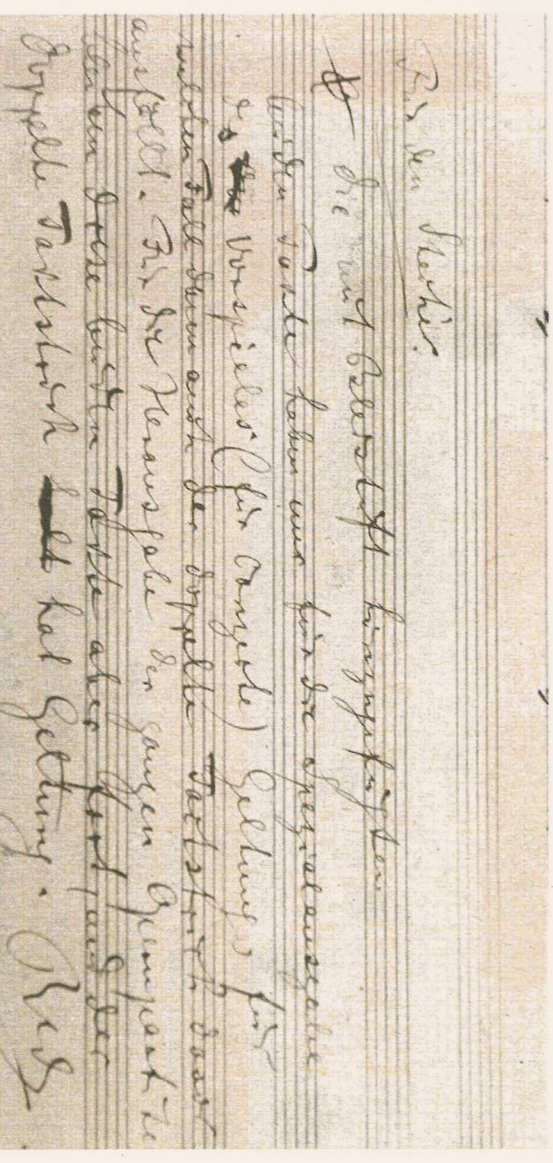 Für den Stecher.
die mit Bleistift hinzugefügten
beiden Takte haben nur für die Spezialausgabe
des Vorspieles (für Conzerte) Geltung, für
welchen Fall dann auch der doppelte Taktstrich davor
ausfällt. Für die Herausgabe der ganzen Opernpartitur
diese beiden Takte aber fort, und der
doppelte Taktstrich hat Geltung.